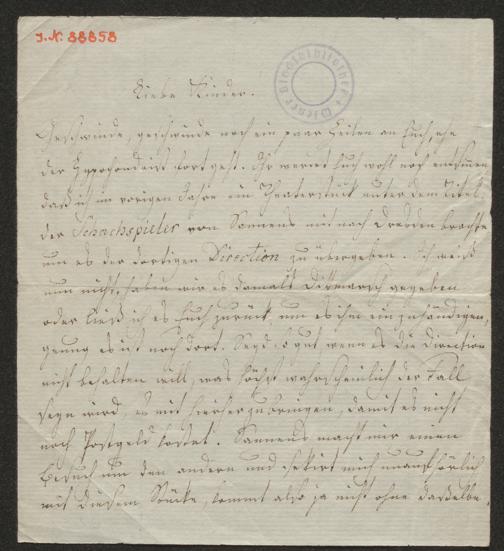 I.N. 38858
Wiener Stadtbibliothek
Liebe Kinder.
Geschwinde, geschwinde noch ein paar Zeilen an Euch, ehe
der Hypochondrist fortgeht. Ihr werdet Euch wohl noch entsinnen
daß ich im vorigen Jahre ein Theaterstück unter dem Titel
der Schachspieler von Sannens mit nach Dresden brachte
um es der dortigen Direction zu übergeben. Ich weiß
nun nicht, haben wir es damals Dittmarsch gegeben
oder ließ ich es Euch zurück, um es ihm einzuhändigen,
genung es ist noch dort. Seyd so gut wenn es die Direction
nicht behalten will, was höchst wahrscheinlich der Fall
seyn wird, es mit hierher zu bringen, damit es nicht
noch Postgeld kostet. Sannens macht mir einen
Besuch um den andern und sekirt mich unaufhörlich
mit diesem Stücke, kommt also ja nicht ohne dasselbe.